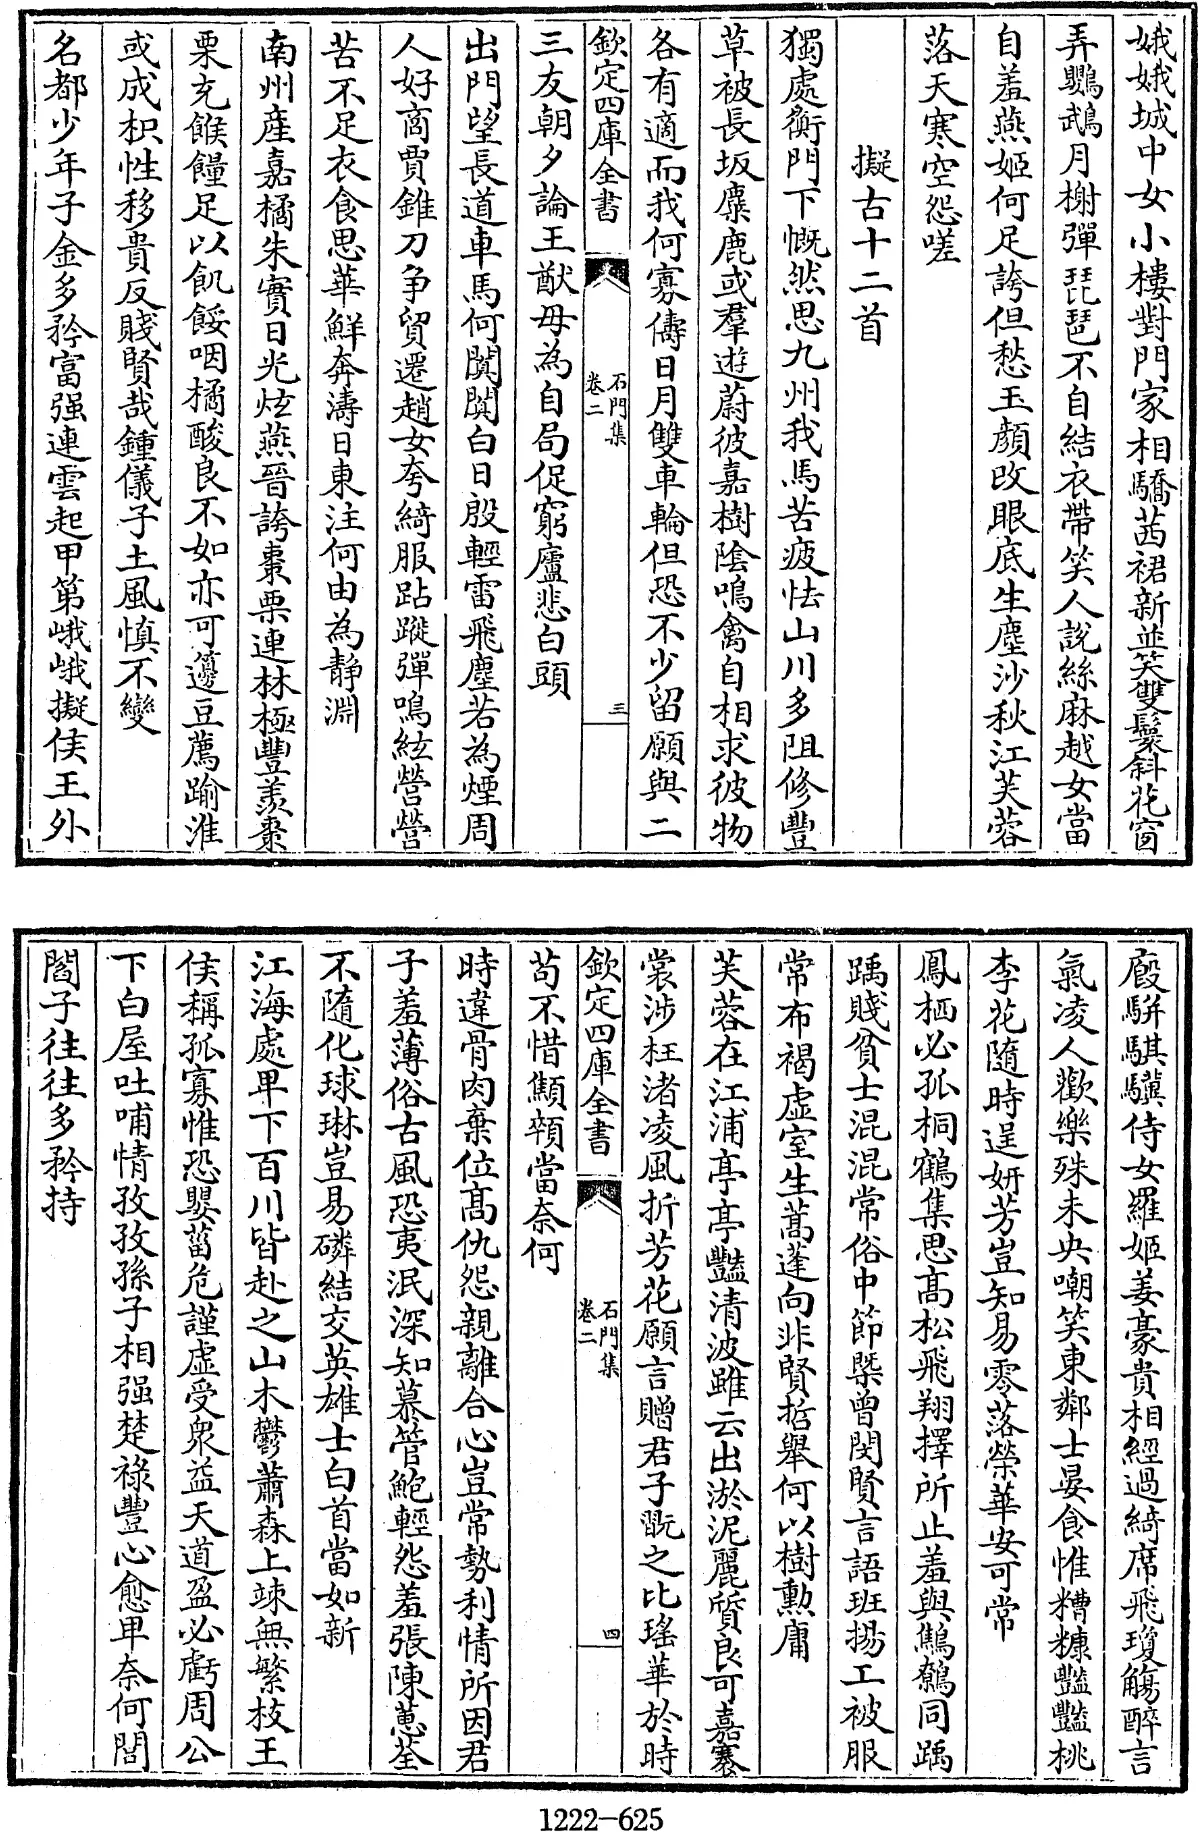 娥娥城中女小樓對門家相驕茜裙新並笑雙鬟斜花窗
弄鸚鵡月榭彈琵琶不自結衣帶笑人說絲麻越女當
自羞燕姬何足誇但愁玉顏改眼底生塵沙秋江芙蓉
落天寒空怨嗟
擬古十二首
獨處衡門下慨然思九州我馬苦疲怯山川多阻修豐
草被長坂麋鹿或羣遊蔚彼嘉樹陰鳴禽自相求彼物
各有適而我何寡儔日月雙車輪但恐不少留願與二
欽定四庫全書
石門集
卷二
三
三友朝夕論王猷毋為自局促窮廬悲白頭
出門望長道車馬何闐闐白日殷輕雷飛塵若為煙周
人好商賈錐刀争貿遷趙女夸綺服跕蹝彈鳴絃營營
苦不足衣食思華鮮奔濤日東注何由為靜淵
南州產嘉橘朱實日光炫燕晉誇棗栗連林極豐羨棗
栗充餱糧足以飢餒咽橘酸良不如亦可籩豆薦踰淮
或成枳性移貴反賤賢哉鍾儀子土風慎不變
名都少年子金多矜富强連雲起甲第峨峨擬侯王外
廄駢騏驥侍女羅姬姜豪貴相經過綺席飛瓊觴醉言
氣凌人歡樂殊未央嘲笑東鄰士晏食惟糟糠豔豔桃
李花隨時逞妍芳豈知易零落榮華安可常
鳳栖必孤桐鶴集思高松飛翔擇所止羞與鷦鷯同踽
踽賤貧士混混常俗中節槩曾閔賢言語班揚工被服
常布褐虛室生蒿蓬向非賢哲舉何以樹勳庸
芙蓉在江浦亭亭豔清波雖云出淤泥麗質良可嘉褰
裳涉枉渚凌風折芳花願言贈君子貺之比瑤華於時
欽定四庫全書
石門集
卷二
四
苟不惜顦顇當奈何
時違骨肉棄位髙仇怨親離合心豈常勢利情所因君
子羞薄俗古風恐夷泯深知慕管鮑輕怨羞張陳蕙荃
不隨化球琳豈易磷結交英雄士白首當如新
江海處卑下百川皆赴之山木鬱蕭森上竦無繁枝王
侯稱孤寡惟恐嬰菑危謹虛受衆益天道盈必虧周公
下白屋吐哺情孜孜孫子相强楚祿豐心愈卑奈何閭
閻子往往多矜持
1222-625